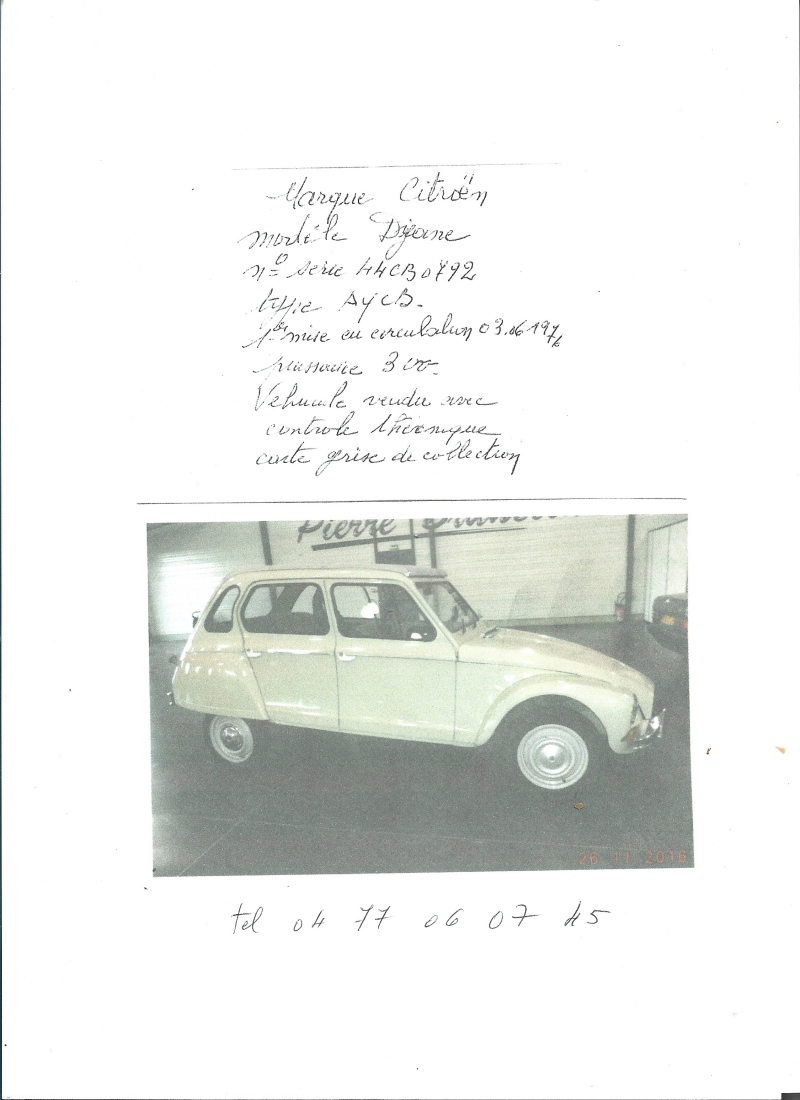 Marque Citroën
modèle Dyane
n° serie 44CB0792
type AYCB.
1ère mise en circulation 03.06 1976
puissance 3 cv.
Vehicule vendu avec
controle
carte grise de collection
Pierre
26 11 2016
tel 04 77 06 07 45